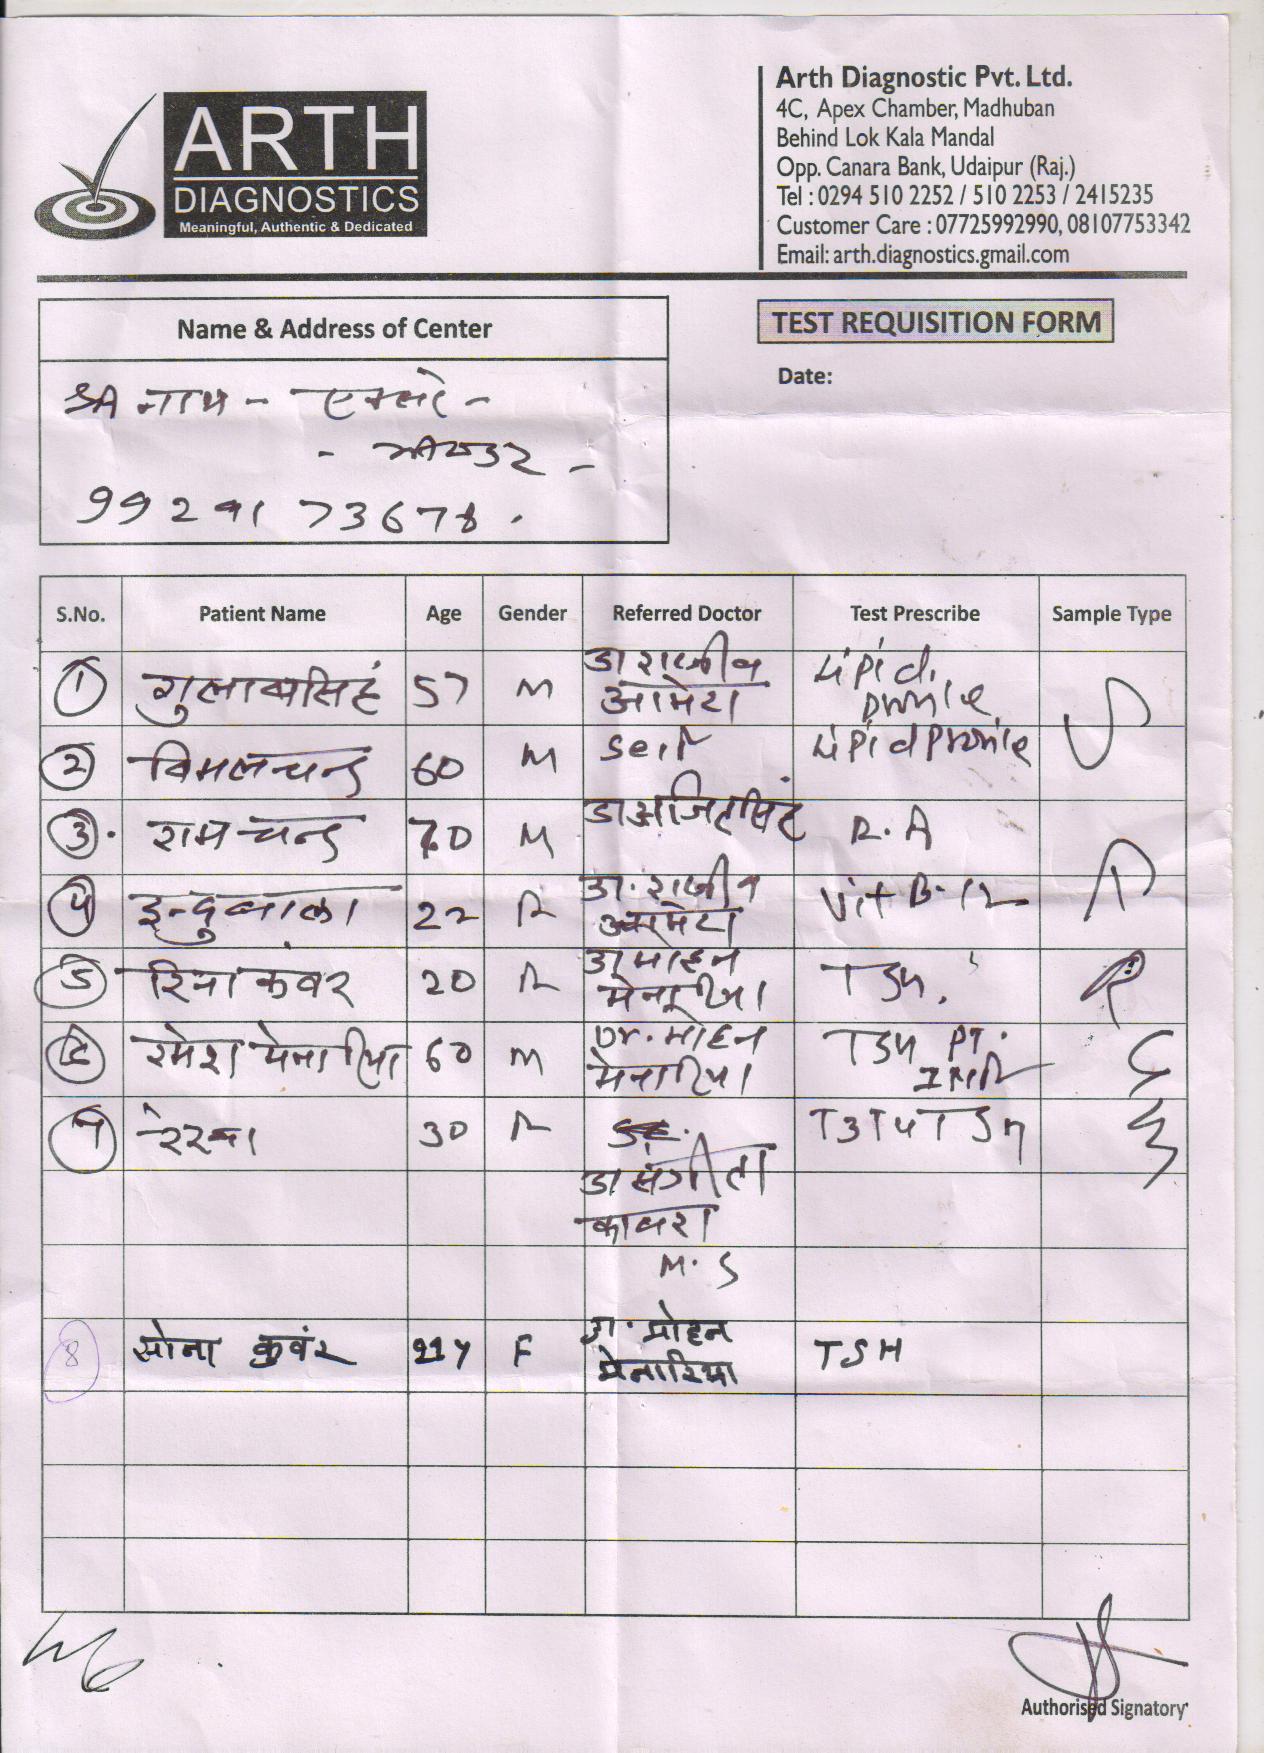 ARTH
DIAGNOSTICS
Meaningful, Authentic & Dedicated
Arth Diagnostic Pvt. Ltd.
4C, Apex Chamber, Madhuban
Behind Lok Kala Mandal
Opp. Canara Bank, Udaipur (Raj.)
Tel : 0294 510 2252 / 510 2253 / 2415235
Customer Care : 07725992990, 08107753342
Email: arth.diagnostics.gmail.com
Name & Address of Center
TEST REQUISITION FORM
Date:
नाथ - एक्सरे -
- भीण्डर -
99291 73678.
S.No. Patient Name Age Gender Referred Doctor Test Prescribe Sample Type
1 गुलाबसिहं 57 M डा राजीव आमेटा Lipid. Profile
2 विमलचन्द 60 M Self Lipid Profile
3. रामचन्द्र 70 M डा अजितसिंह R.A
4 इन्दुबाला 22 F डा. राजीव आमेटा Vit B-12
5 रिना कंवर 20 F डा मोहन मेनारिया TSH.
6 रमेश मेनारिया 60 M Dr. मोहन मेनारिया TSH PT.
7 रेखा 30 F T3 T4 TSH
डा संगीता
काबरा
M.S
8 सोना कुवंर 21y F डा. मोहन मेनारिया TSH
Authorised Signatory